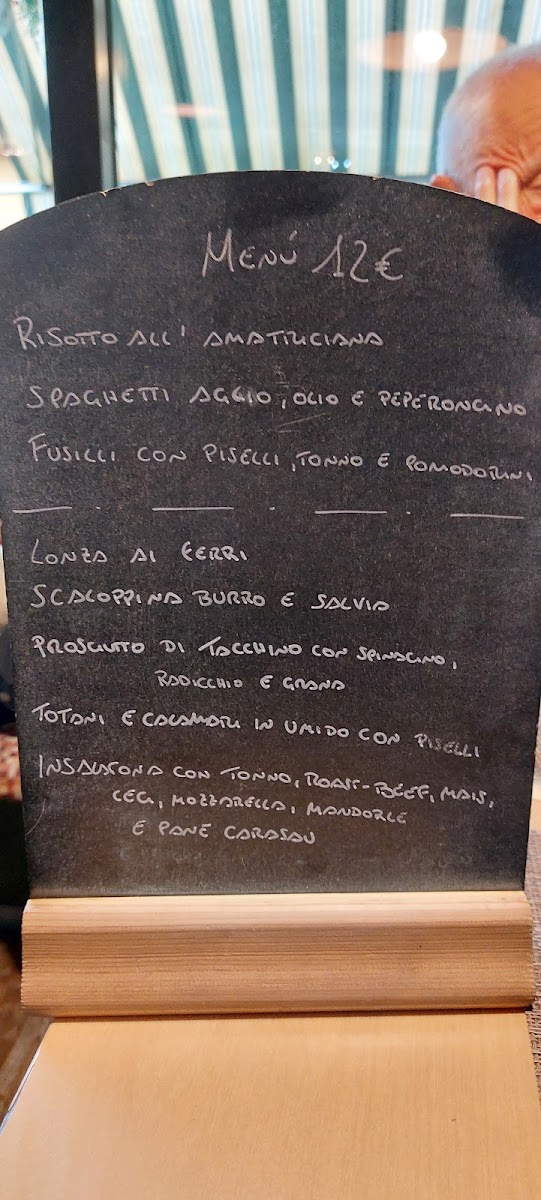 MENÚ 12€
RISOTTO ALL' AMATRICIANA
SPAGHETTI AGLIO, OLIO E PEPERONCINO
FUSILLI CON PISELLI, TONNO E POMODORINI
LONZA AI FERRI
SCALOPPINA BURRO E SALVIA
PROSCIUTTO DI TACCHINO CON SPINACINO,
RADICCHIO E GRANA
TOTANI E CALAMARI IN UMIDO CON PISELLI
INSALATONA CON TONNO, ROAST-BEEF, MAIS,
CECI, MOZZARELLA, MANDORLE
E PANE CARASAU